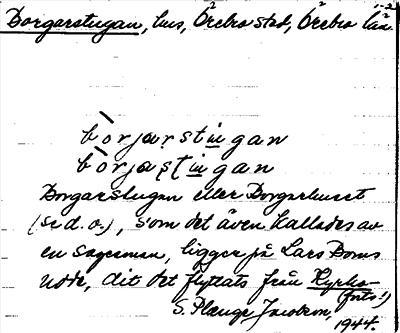 1-2
Borgarstugan, hus, Örebro stad, Örebro län.
bòrjarstugan
bòrjaștugan
Borgarstugan eller Borgarhuset
(se d. o.), som det även kallades av
en sagesman, ligger på Lars Bohms
udde, dit det flyttats från Kyrko-
(forts!)
S. Plænge Jacobson,
1944.